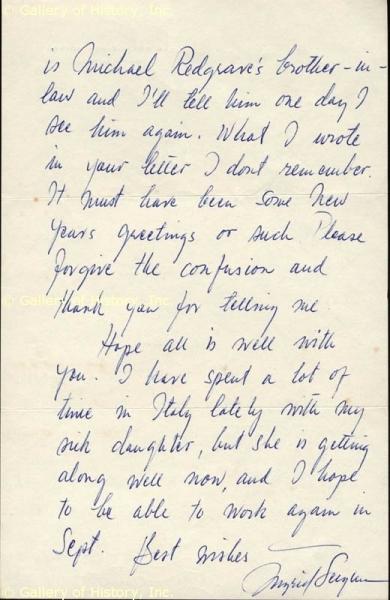 © Gallery of History, Inc.
is Michael Redgrave's brother-in-
law and I'll tell him one day I
see him again. What I wrote
in your letter I dont remember.
It must have been some New
Years greetings or such. Please
forgive the confusion and
© Gallery of History, Inc.
thank you for telling me.
Hope all is well with
you. I have spent a lot of
time in Italy lately with my
sick daughter, but she is getting
along well now, and I hope
to be able to work again in
Sept. Best wishes
Ingrid Bergman
© Gallery of History, Inc.